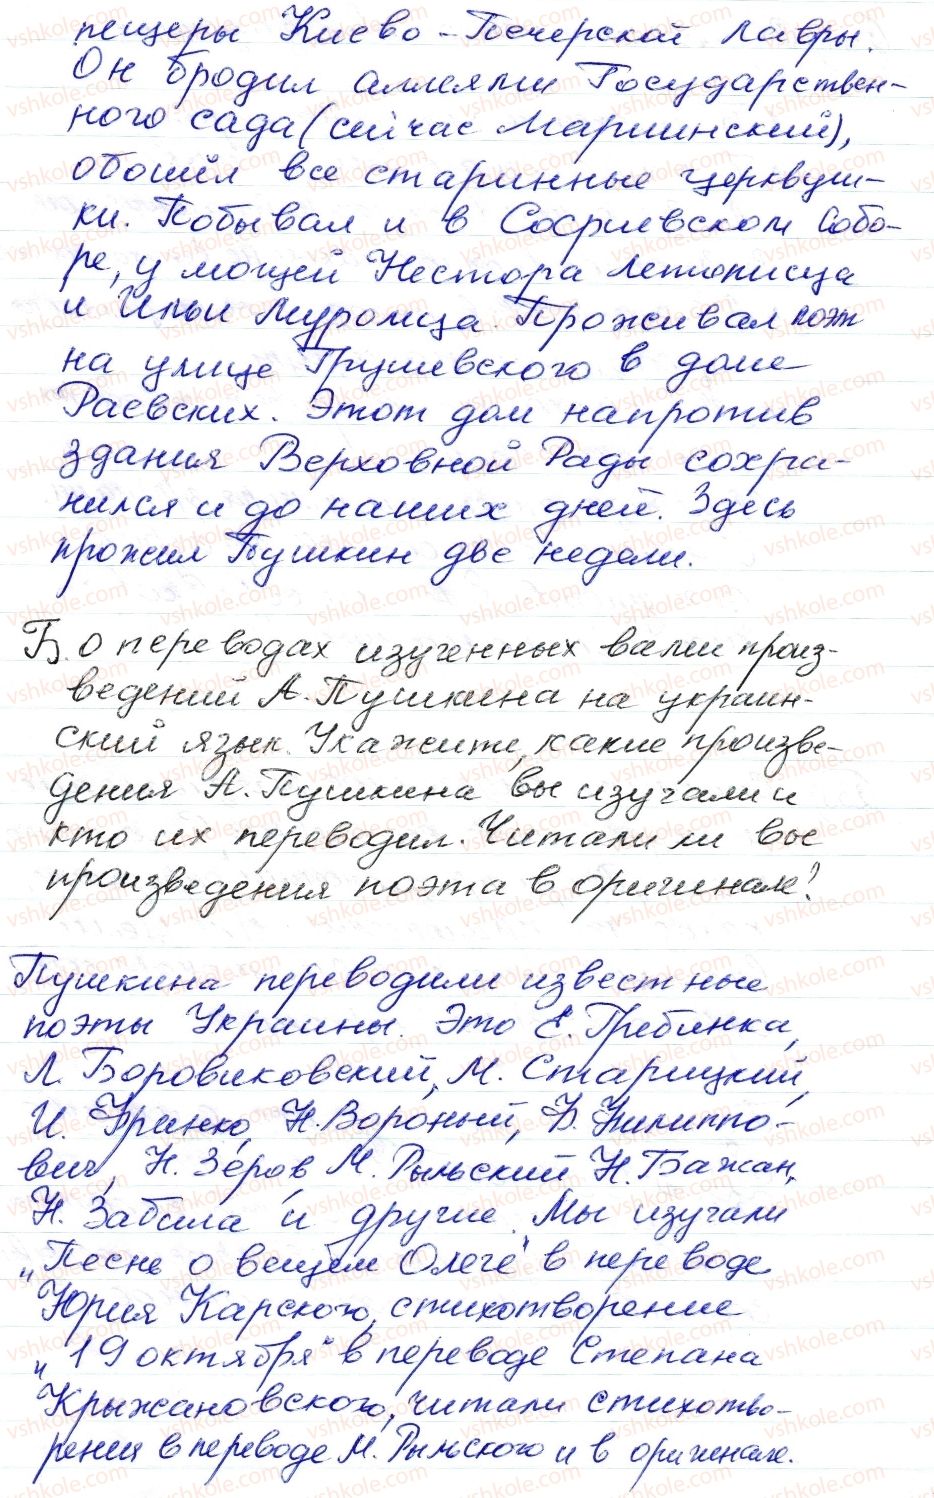 пещеры Киево-Печерской Лавры.
Он бродил аллеями Государствен-
ного сада (сейчас Мариинский),
обошёл все старинные церквуш-
ки. Побывал и в Софиевском Собо-
ре, у мощей Нестора Летописца
и Ильи Муромца. Проживал поэт
на улице Грушевского в доме
Раевских. Этот дом напротив
здания Верховной Рады сохра-
нился и до наших дней. Здесь
прожил Пушкин две недели.
Б. О переводах изученных вами произ-
ведений А. Пушкина на украин-
ский язык. Укажите, какие произве-
дения А. Пушкина вы изучали и
кто их переводил. Читали ли вы
произведения поэта в оригинале?
Пушкина переводили известные
поэты Украины. Это Е. Гребинка,
Л. Боровиковский, М. Старицкий,
И. Франко, Н. Вороный, Филиппо-
вич, Н. Зеров М. Рыльский Н. Бажан,
Н. Забила и другие. Мы изучали
„Песнь о вещем Олеге" в переводе
Юрия Карского, стихотворение
„19 октября" в переводе Степана
Крыжановского, читали стихотво-
рения в переводе М. Рыльского и в оригинале.